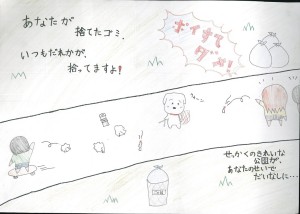 あなたが
捨てたゴミ、
いつもだれかが、
拾ってますよ!
ポイすて
ダメ!
せっかくのきれいな
公園が、
あなたのせいで
だいなしに…